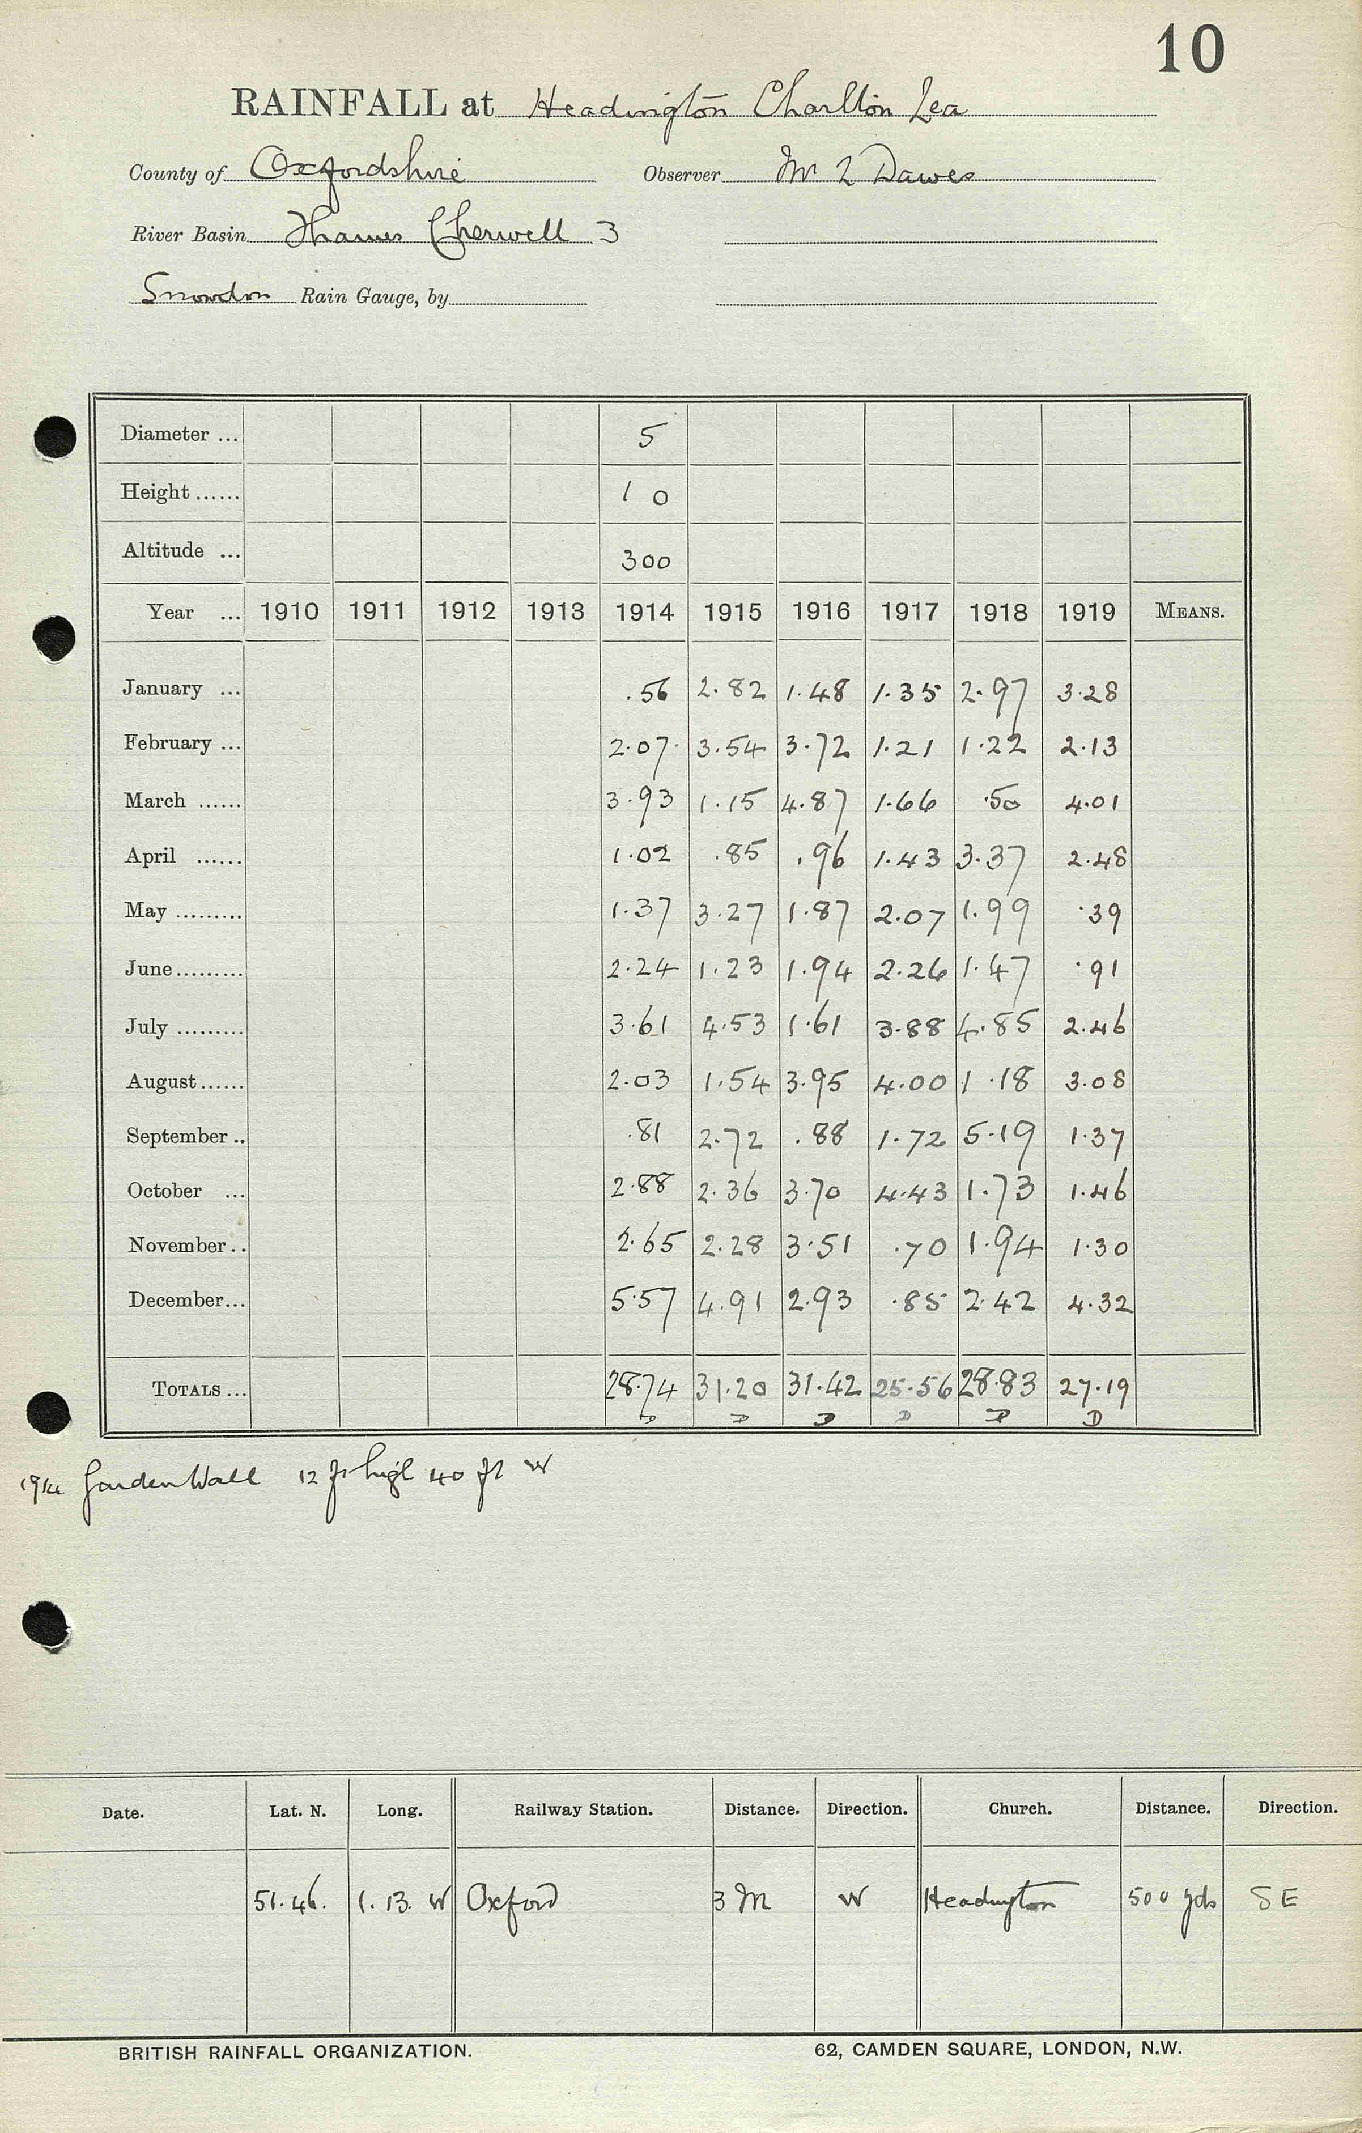 10
RAINFALL at Headington Charlton Lea
County of Oxfordshire Observer Mr L Dawes
River Basin Thames Cherwell 3
Snowdon Rain Gauge, by
Diameter ... 5
Height ...... 10
Altitude ... 300
Year ... 1910 1911 1912 1913 1914 1915 1916 1917 1918 1919 MEANS.
January ... .56 2.82 1.48 1.35 2.97 3.28
February ... 2.07 3.54 3.72 1.21 1.22 2.13
March ...... 3.93 1.15 4.87 1.66 .50 4.01
April ...... 1.02 .85 .96 1.43 3.37 2.48
May ......... 1.37 3.27 1.87 2.07 1.99 .39
June......... 2.24 1.23 1.94 2.26 1.47 .91
July ......... 3.61 4.53 1.61 3.88 4.85 2.46
August...... 2.03 1.54 3.95 4.00 1.18 3.08
September .. .81 2.72 .88 1.72 5.19 1.37
October ... 2.88 2.36 3.70 4.43 1.73 1.46
November.. 2.65 2.28 3.51 .70 1.94 1.30
December... 5.57 4.91 2.93 .85 2.42 4.32
TOTALS ... 28.74 31.20 31.42 25.56 28.83 27.19
D D D D D D
1914 Garden Wall 12 ft high 40 ft W
Date. Lat. N. Long. Railway Station. Distance. Direction. Church. Distance. Direction.
51.46. 1.13. W Oxford 3 M W Headington 500 yds SE
BRITISH RAINFALL ORGANIZATION. 62, CAMDEN SQUARE, LONDON, N.W.